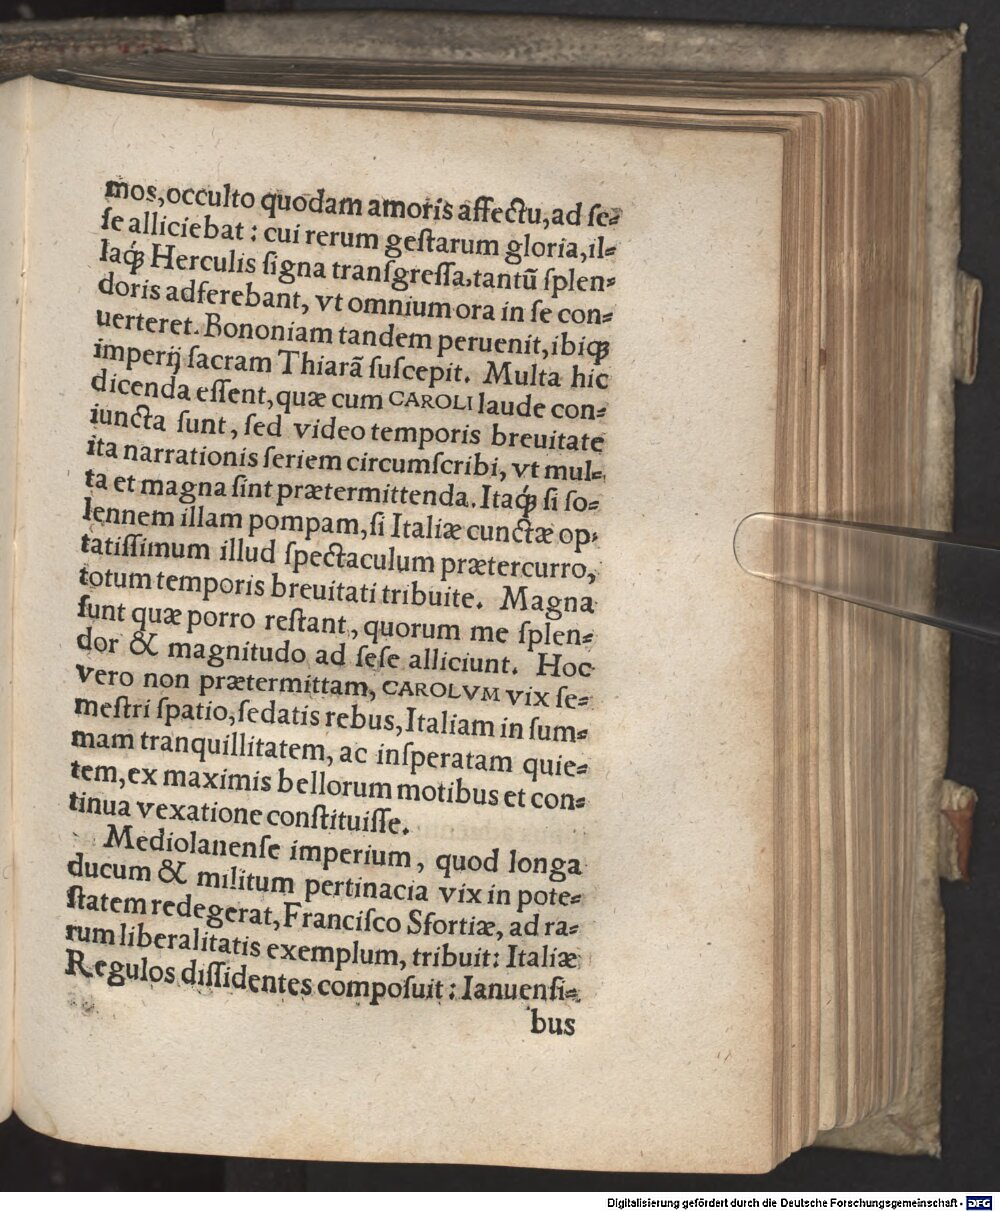 mos, occulto quodam amoris affectu, ad ſe⸗
ſe alliciebat : cui rerum geſtarum gloria, il⸗
laq́ꝫ Herculis ſigna tranſgreſſa, tantũ ſplen⸗
doris adferebant, vt omnium ora in ſe con⸗
uerteret. Bononiam tandem peruenit, ibiqꝫ
imperij ſacram Thiarã ſuſcepit. Multa hic
dicenda eſſent, quæ cum CAROLI laude con⸗
iuncta ſunt, ſed video temporis breuitate
ita narrationis ſeriem circumſcribi, vt mul⸗
ta et magna ſint prætermittenda. Itaq́ꝫ ſi ſo⸗
lennem illam pompam, ſi Italiæ cunctæ op⸗
tatiſſimum illud ſpectaculum prætercurro,
totum temporis breuitati tribuite. Magna
ſunt quæ porro reſtant, quorum me ſplen⸗
dor & magnitudo ad ſeſe alliciunt. Hoc
vero non prætermittam, CAROLVM vix ſe⸗
meſtri ſpatio, ſedatis rebus, Italiam in ſum⸗
mam tranquillitatem, ac inſperatam quie⸗
tem, ex maximis bellorum motibus et con⸗
tinua vexatione conſtituiſſe.
Mediolanenſe imperium, quod longa
ducum & militum pertinacia vix in pote⸗
ſtatem redegerat, Franciſco Sfortiæ, ad ra⸗
rum liberalitatis exemplum, tribuit: Italiæ
Regulos diſſidentes compoſuit : Ianuenſi⸗
bus
Digitalisierung gefördert durch die Deutsche Forschungsgemeinschaft - DFG